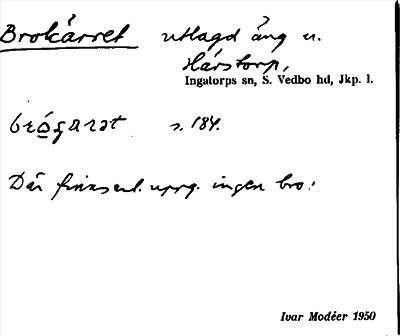 Brokärret utlagd äng u.
Hårstorp,
Ingatorps sn, S. Vedbo hd, Jkp. l.
s. 184.
Där finns enl. uppg. ingen bro.
Ivar Modéer 1950